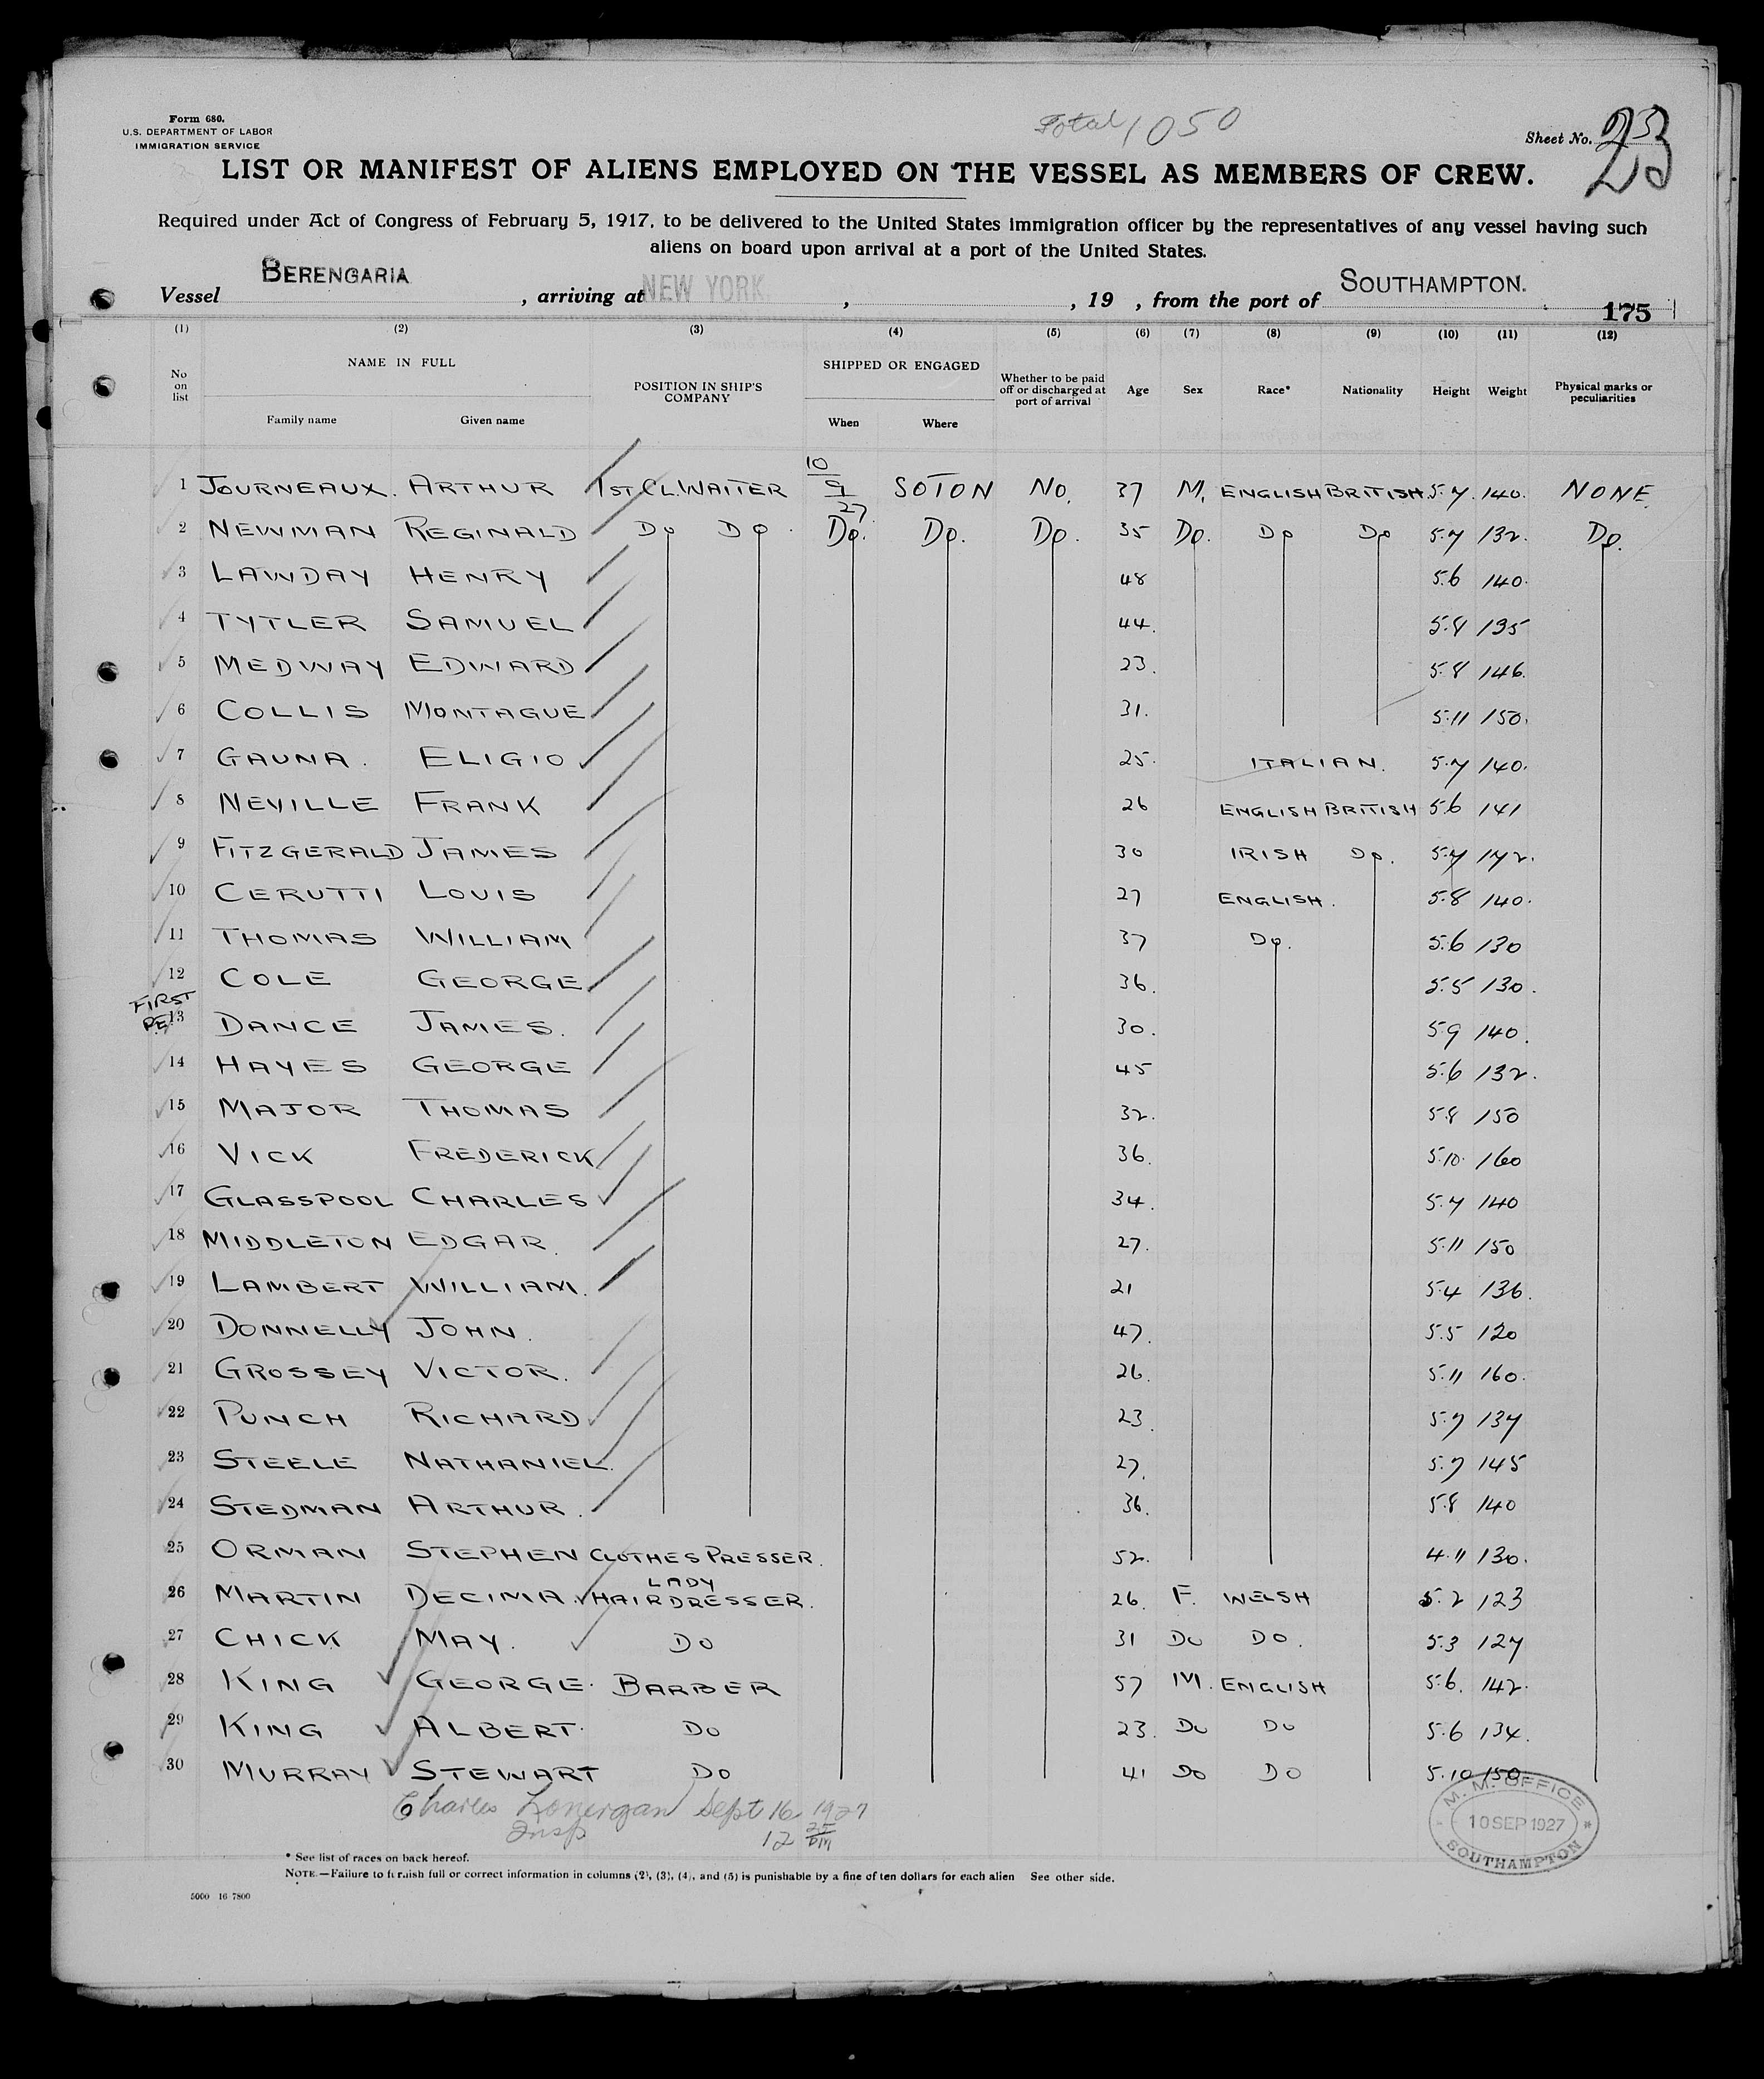 Form 680.
U.S. DEPARTMENT OF LABOR
IMMIGRATION SERVICE
Total 1050
Sheet No. 23
LIST OR MANIFEST OF ALIENS EMPLOYED ON THE VESSEL AS MEMBERS OF CREW.
Required under Act of Congress of February 5, 1917, to be delivered to the United States immigration officer by the representatives of any vessel having such
aliens on board upon arrival at a port of the United States.
Vessel BERENGARIA, arriving at NEW YORK, , 19 , from the port of SOUTHAMPTON.
175
(1) (2) (3) (4) (5) (6) (7) (8) (9) (10) (11) (12)
No on list NAME IN FULL Family name Given name POSITION IN SHIP'S COMPANY SHIPPED OR ENGAGED When Where Whether to be paid off or discharged at port of arrival Age Sex Race* Nationality Height Weight Physical marks or peculiarities
1 JOURNEAUX. ARTHUR 1ST CL. WAITER 10/9/27 SOTON NO. 37 M. ENGLISH BRITISH 5.7. 140. NONE.
2 NEWMAN REGINALD DO DO. DO. DO. DO. 35 DO. DO DO 5.7 132. DO.
3 LAWDAY HENRY 48 5.6 140.
4 TYTLER SAMUEL 44. 5.8 135
5 MEDWAY EDWARD 23. 5.8 146.
6 COLLIS MONTAGUE 31. 5.11 150.
7 GAUNA. ELIGIO 25. ITALIAN. 5.7 140.
8 NEVILLE FRANK 26 ENGLISH BRITISH 5.6 141
9 FITZGERALD JAMES 30 IRISH DO. 5.7 142.
10 CERUTTI LOUIS 27 ENGLISH. 5.8 140.
11 THOMAS WILLIAM 37 DO. 5.6 130
12 COLE GEORGE 36. 5.5 130.
FIRST
13 DANCE JAMES. 30. 5.9 140.
14 HAYES GEORGE 45 5.6 132.
15 MAJOR THOMAS 32. 5.8 150
16 VICK FREDERICK 36. 5.10. 160
17 GLASSPOOL CHARLES 34. 5.7 140
18 MIDDLETON EDGAR. 27. 5.11 150
19 LAMBERT WILLIAM. 21 5.4 136.
20 DONNELLY JOHN. 47. 5.5 120
21 GROSSEY VICTOR. 26. 5.11 160.
22 PUNCH RICHARD 23. 5.7 137
23 STEELE NATHANIEL. 27. 5.7 145
24 STEDMAN ARTHUR. 36. 5.8 140
25 ORMAN STEPHEN CLOTHES PRESSER. 52. 4.11 130.
26 MARTIN DECIMA. LADY HAIRDRESSER. 26. F. WELSH 5.2 123
27 CHICK MAY. DO 31 DO DO. 5.3 127
28 KING GEORGE. BARBER 57 M. ENGLISH 5.6. 142.
29 KING ALBERT. DO 23. DO DO 5.6 134.
30 MURRAY STEWART DO 41 DO DO 5.10 150
Charles Lonergan Sept 16 1927
Insp 12 25 pm
M. M. OFFICE
10 SEP 1927
SOUTHAMPTON
* See list of races on back hereof.
NOTE.—Failure to furnish full or correct information in columns (2), (3), (4), and (5) is punishable by a fine of ten dollars for each alien See other side.
5000 16 7800